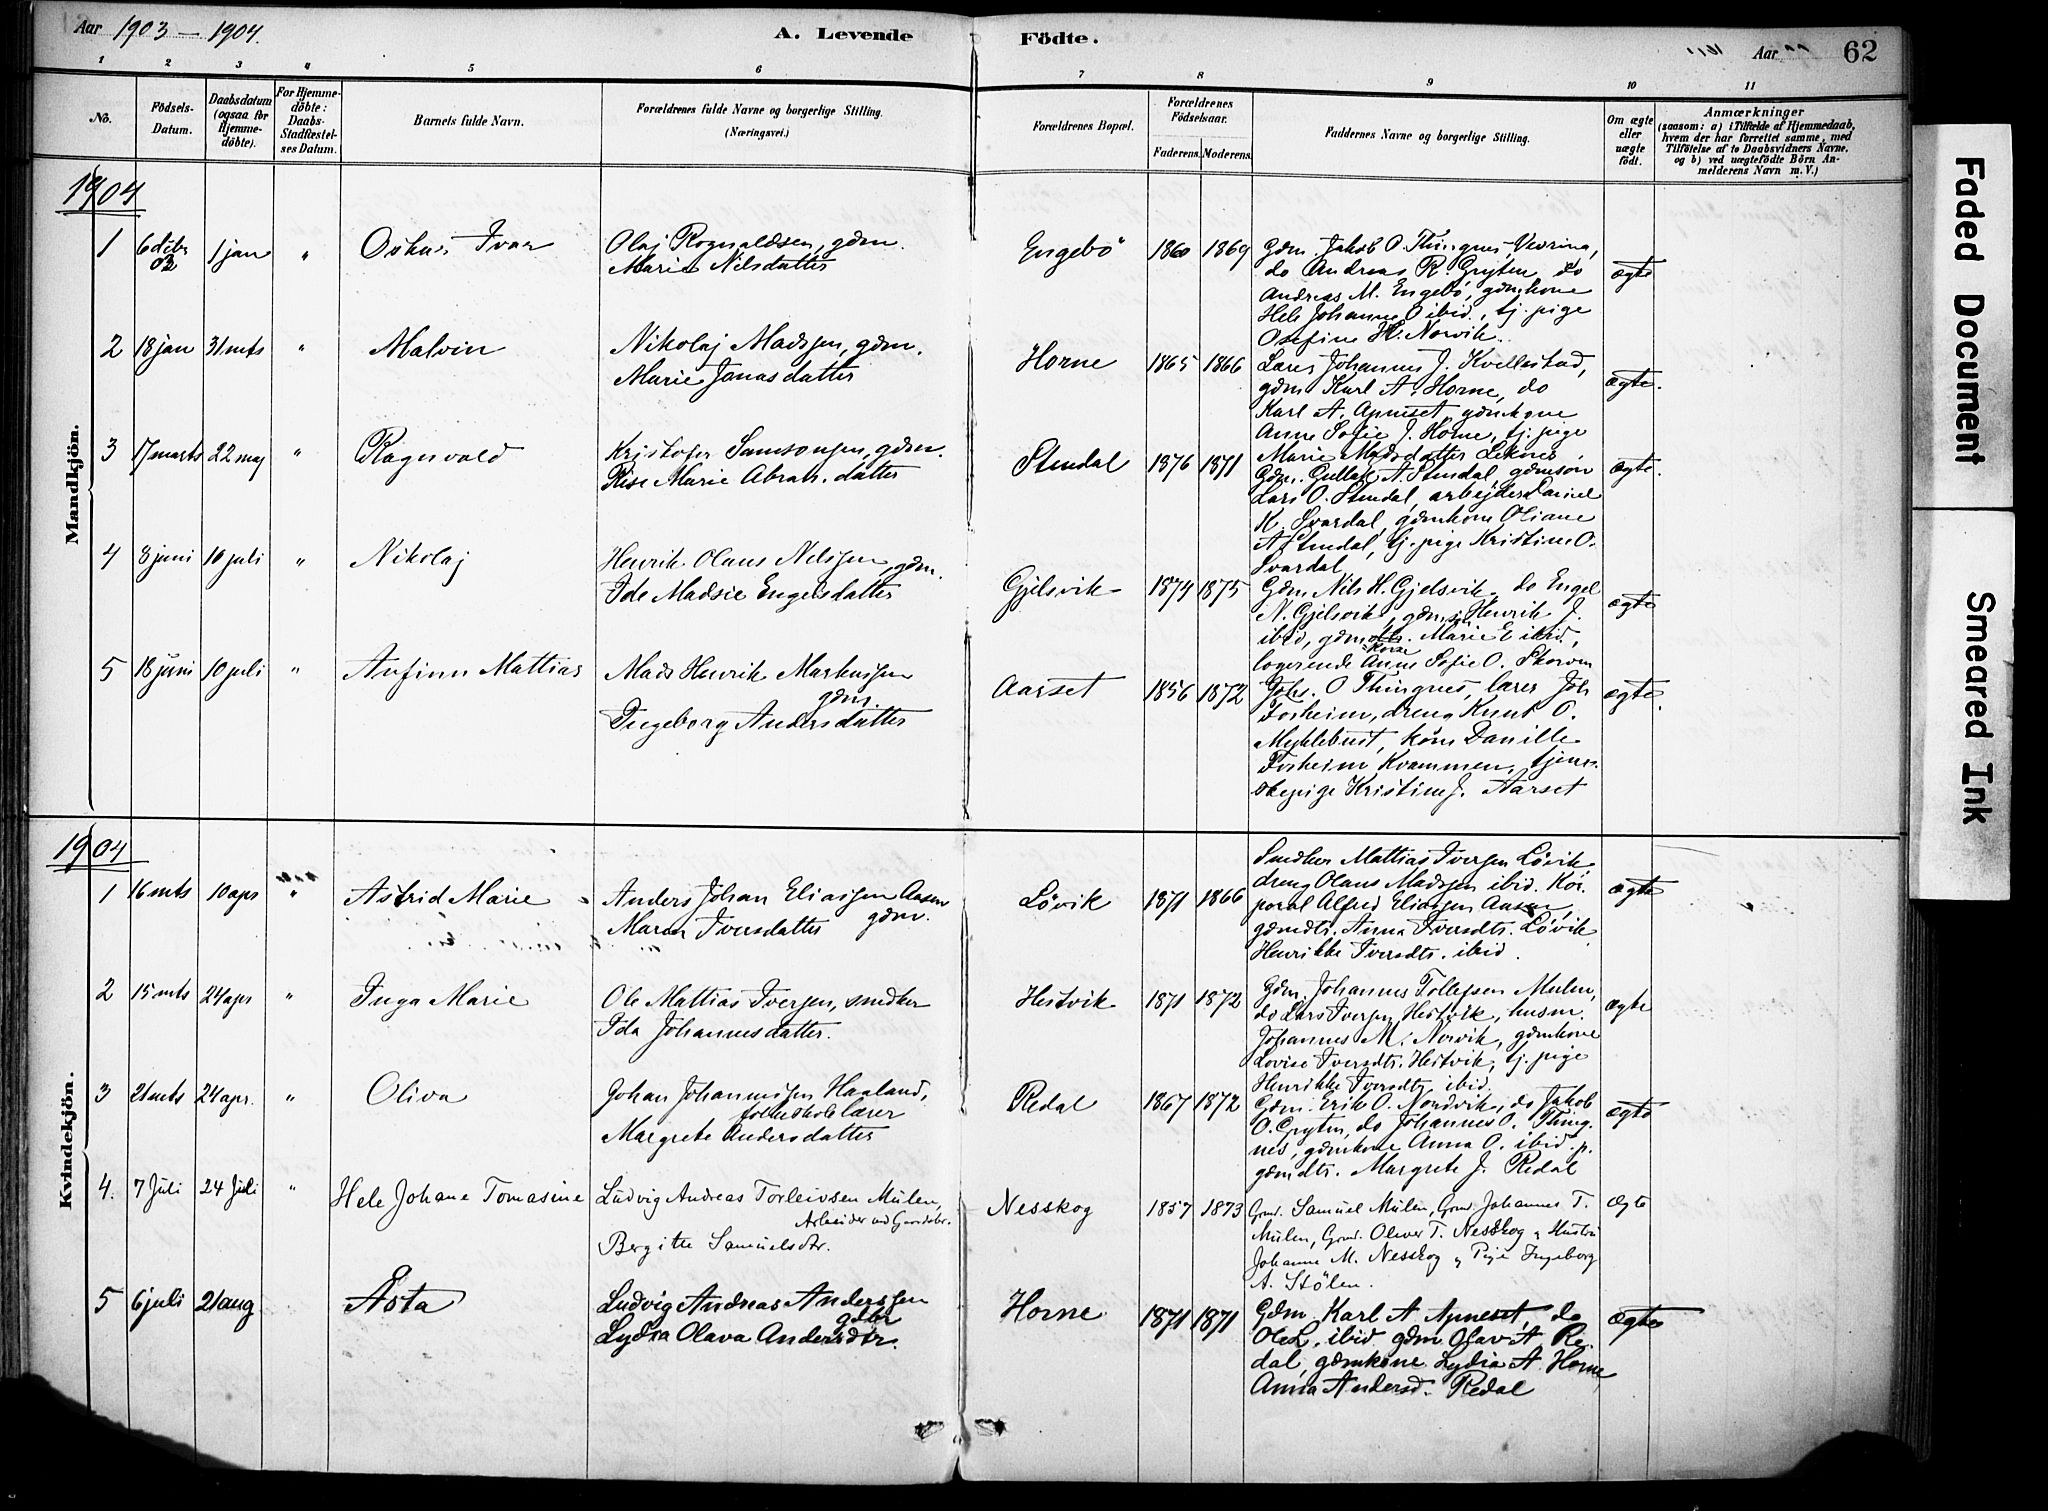 Aar 1903 — 1904. A. Levende Födte. Aar 62
1 2 3 4 5 6 7 8 9 10 11
No. Födsels-Datum. Daabsdatum (ogsaa for Hjemme-döbte). For Hjemme-döbte: Daabs-Stadfæstel-ses Datum. Barnets fulde Navn. Forældrenes fulde Navne og borgerlige Stilling. (Næringsvei.) Forældrenes Bopæl. Forældrenes Födselsaar. Faderens. Moderens. Faddernes Navne og borgerlige Stilling. Om ægte eller uægte födt. Anmærkninger (saasom: a) i Tilfælde af Hjemmedaab, hvem der har forrettet samme, med Tilföielse af to Daabsvidners Navne, og b) ved uægtefödte Börn An-melderens Navn m. V.)
Mandkjön.
1904
1 6 dcbr 03 1 jan " Oskar Ivar
Olaj Rognaldsen, gdm.
Marie Nilsdatter
Engebö 1860 1869
Gdm. Jakob O. Thingnes, Vevring,
do Andreas R. Gryten, do
Andreas M. Engebö, gdmkone
Hele Johanne O ibid., tj. pige
Osefine H. Norvik.
ægte
2 18 jan 31 mts " Malvin
Nikolaj Madssen, gdm.
Marie Jonasdatter
Horne 1865 1866
Lærer Johannes J. Kvellestad,
gdm Karl A. Horne, do
Karl A. Apneset, gdmkone
Anne Sofie J. Horne, tj. pige
Marie Madsdatter Leknes
ægte.
3 17 marts 22 maj " Ragnvald
Kristofer Samsonsen, gdm.
Rise Marie Abrah. datter
Stendal 1876 1871
Gdm. Gullak A. Stendal, gdmsøn
Lars O. Stendal, arbejder Daniel
K. Svardal, gdmkone Oliane
A. Stendal, tj. pige Kristine O.
Svardal
ægte.
4 8 juni 10 juli " Nikolaj
Henrik Olaus Nelssen, gdm.
Ide Madsie Engelsdatter
Gjelsvik 1874 1875
Gdm Nils H. Gjelsvik, do Engel
N. Gjelsvik, gdms. Henrik J.
ibid, gdm kone Marie E ibid,
logerende Anne Sofie O. Skorven
ægte
5 18 juni 10 juli " Anfinn Mattias
Mads Henrik Markussen
gdm.
Ingeborg Andersdatter
Aarset 1856 1872
Johs. O Thingnes, lærer Joh
Fosheim, dreng Knut O.
Myklebust, kone Danille
Fosheim Kvammen, tjene-
stepige Kristine J. Aarset
ægte.
Kvindekjön.
1904
1 16 mts 10 apr " Astrid Marie
Anders Johan Eliassen Aasen
gdm.
Maren Iversdatter
Lövik 1871 1866
Snedker Mattias Iversen Lövik
dreng Olaus Madssen ibid. Kor-
poral Alfred Eliassen Aasen,
gdmdtr. Anna Iversdtr. Lövik
Henrikke Iversdtr. ibid.
ægte
2 15 mts 24 apr " Inga Marie
Ole Mattias Iversen, snedker
Ida Johannesdatter.
Hestvik 1871 1872
Gdm. Johannes Tollefsen Mulen,
do Lars Iversen Hestvik, husm.
Johannes M. Norvik, gdmkone
Lovise Iversdtr. Hestvik, tj. pige
Henrikke Iversdtr ibid.
ægte
3 21 mts 24 apr. " Oliva
Johan Johannessen Haaland,
folkeskolelærer
Margrete Andersdatter
Redal 1867 1872
Gdm. Erik O. Nordvik, do Jakob
O. Gryten, do Johannes O. Thing-
nes, gdmkone Anna O. ibid. p.
gdmdtr. Margrete J. Redal
ægte
4. 7 Juli 24 Juli " Hele Johane Tomasine
Ludvig Andreas Torleivsen Mülen,
Arbeider ved Gaardsbr.
Bergitte Samuelsdtr.
Nesskog 1857 1873
Grmd. Samuel Mülen, Grmd. Johannes T.
Mülen, Grmd. Oliver T. Nesskog, Hustru
Johanne M. Nesskog, Pige Ingeborg
A. Stölen.
Ægte
5 6 juli 21 aug Åsta
Ludvig Andreas Anderssen
Lydia Olava Andersdtr.
Horne 1871 1871
Gdm. Karl A Apneset, do
Ole L. ibid gdm Olav A Re-
dal, gdmkone Lydia A. Horne,
Anna Andersd. Redal
Ægte
Faded Document
Smeared Ink